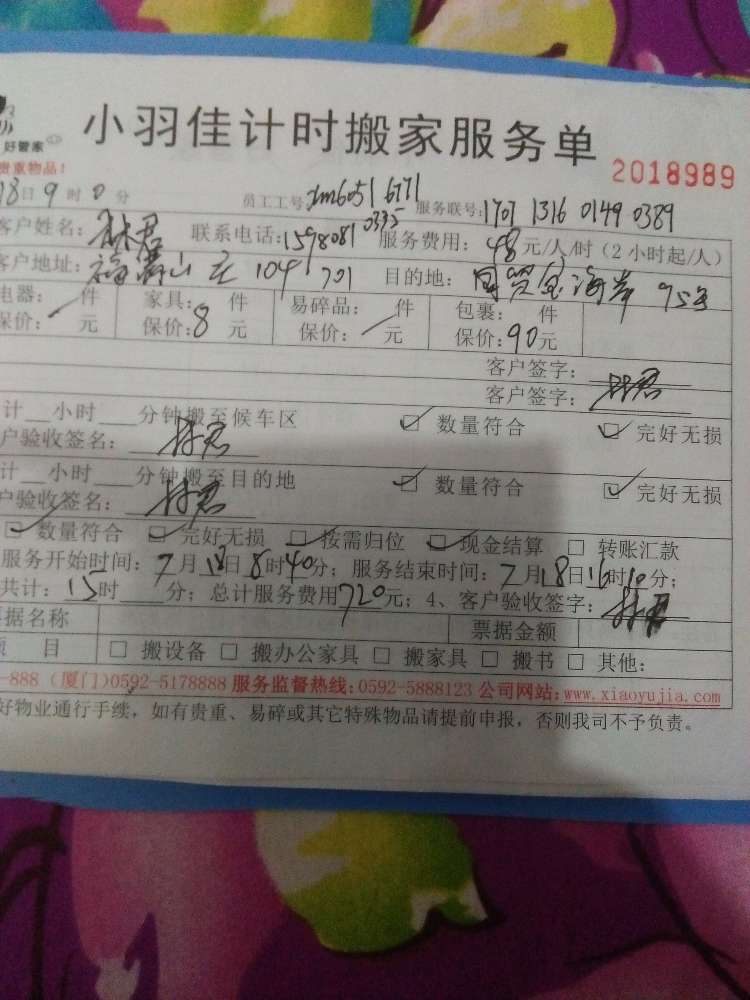 好管家
小羽佳计时搬家服务单
贵重物品!
2018989
18日9时0分 员工工号 服务联号:1701 1316 0149 0389
客户姓名:林君 联系电话:1598081 0335 服务费用:48元/人/时(2小时起/人)
客户地址: 山庄 104 701 目的地:国贸金海岸
电器: 件 家具: 件 易碎品: 件 包裹: 件
保价: 元 保价:8元 保价: 元 保价:90元
客户签字:林君
客户签字:林君
计__小时___分钟搬至候车区 数量符合 完好无损
户验收签名:林君
计__小时___分钟搬至目的地 数量符合 完好无损
户验收签名:林君
数量符合 完好无损 按需归位 现金结算 转账汇款
服务开始时间:7月18日8时40分;服务结束时间:7月18日16时10分;
共计:15时___分;总计服务费用720元;4、客户验收签字:林君
票据名称 票据金额
项 目 搬设备 搬办公家具 搬家具 搬书 其他:
-888(厦门)0592-5178888 服务监督热线:0592-5888123 公司网站:www.xiaoyujia.com
好物业通行手续,如有贵重、易碎或其它特殊物品请提前申报,否则我司不予负责。